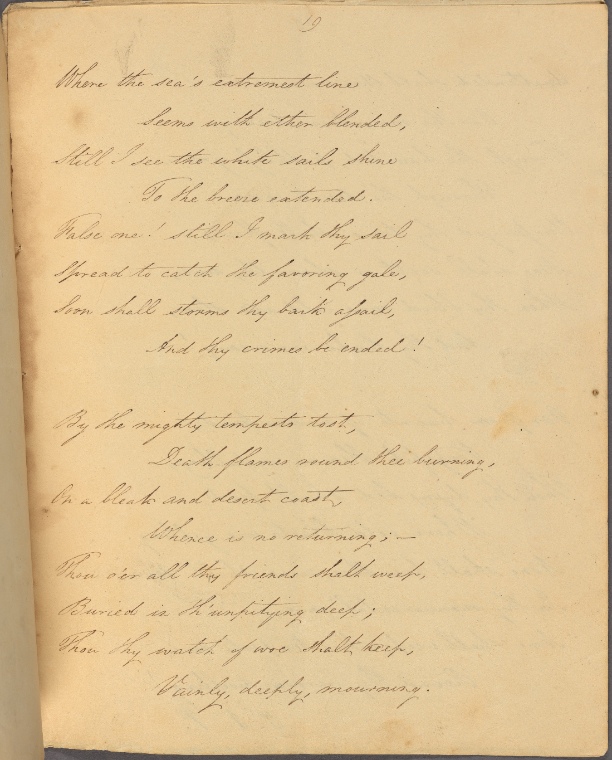 19
Where the sea's extremest line
Seems with ether blended,
Still I see the white sails shine
To the breeze extended.
False one! still I mark thy sail
Spread to catch the favoring gale,
Soon shall storms thy bark assail,
And thy crimes be ended!
By the mighty tempests tost,
Death flames round thee burning,
On a bleak and desert coast,
Whence is no returning; —
Thou o'er all thy friends shalt weep,
Buried in th'unpitying deep;
Thou thy watch of woe shalt keep,
Vainly, deeply, mourning.